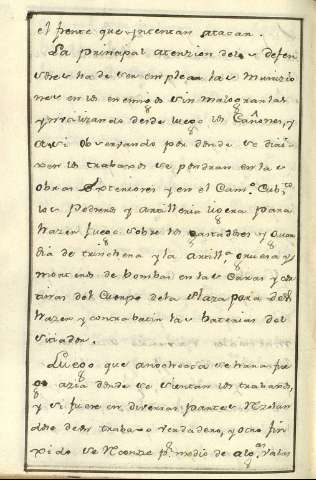 el frente que intentan atacar.
La principal atenzion de los defen
sores ha de ser emplear las munizio
nes en los enemigos sin malograrlas
y utilizando desde luego los Cañones, y
assi observando por donde se diri
xen los trabaxos se pondran en las
obras Exteriores y en el Cam.º Cub.to
los Pedreros y artilleria lixera para
hazer fuego sobre los gastadores y guar
dia de trinchera y la artill.ª gruesa y
morteros de bombas en las Caras y cor
tinas del Cuerpo dela Plaza para des
hazer y contrabatir las baterias del
sitiador.
Luego que anochezca se hara fue
go azia donde se sientan los trabaxos,
y si fuere en diversas partes rezelan
dose de un trabaxo verdadero, y otro fin
xido se reconoze p.r medio de alg.os valas